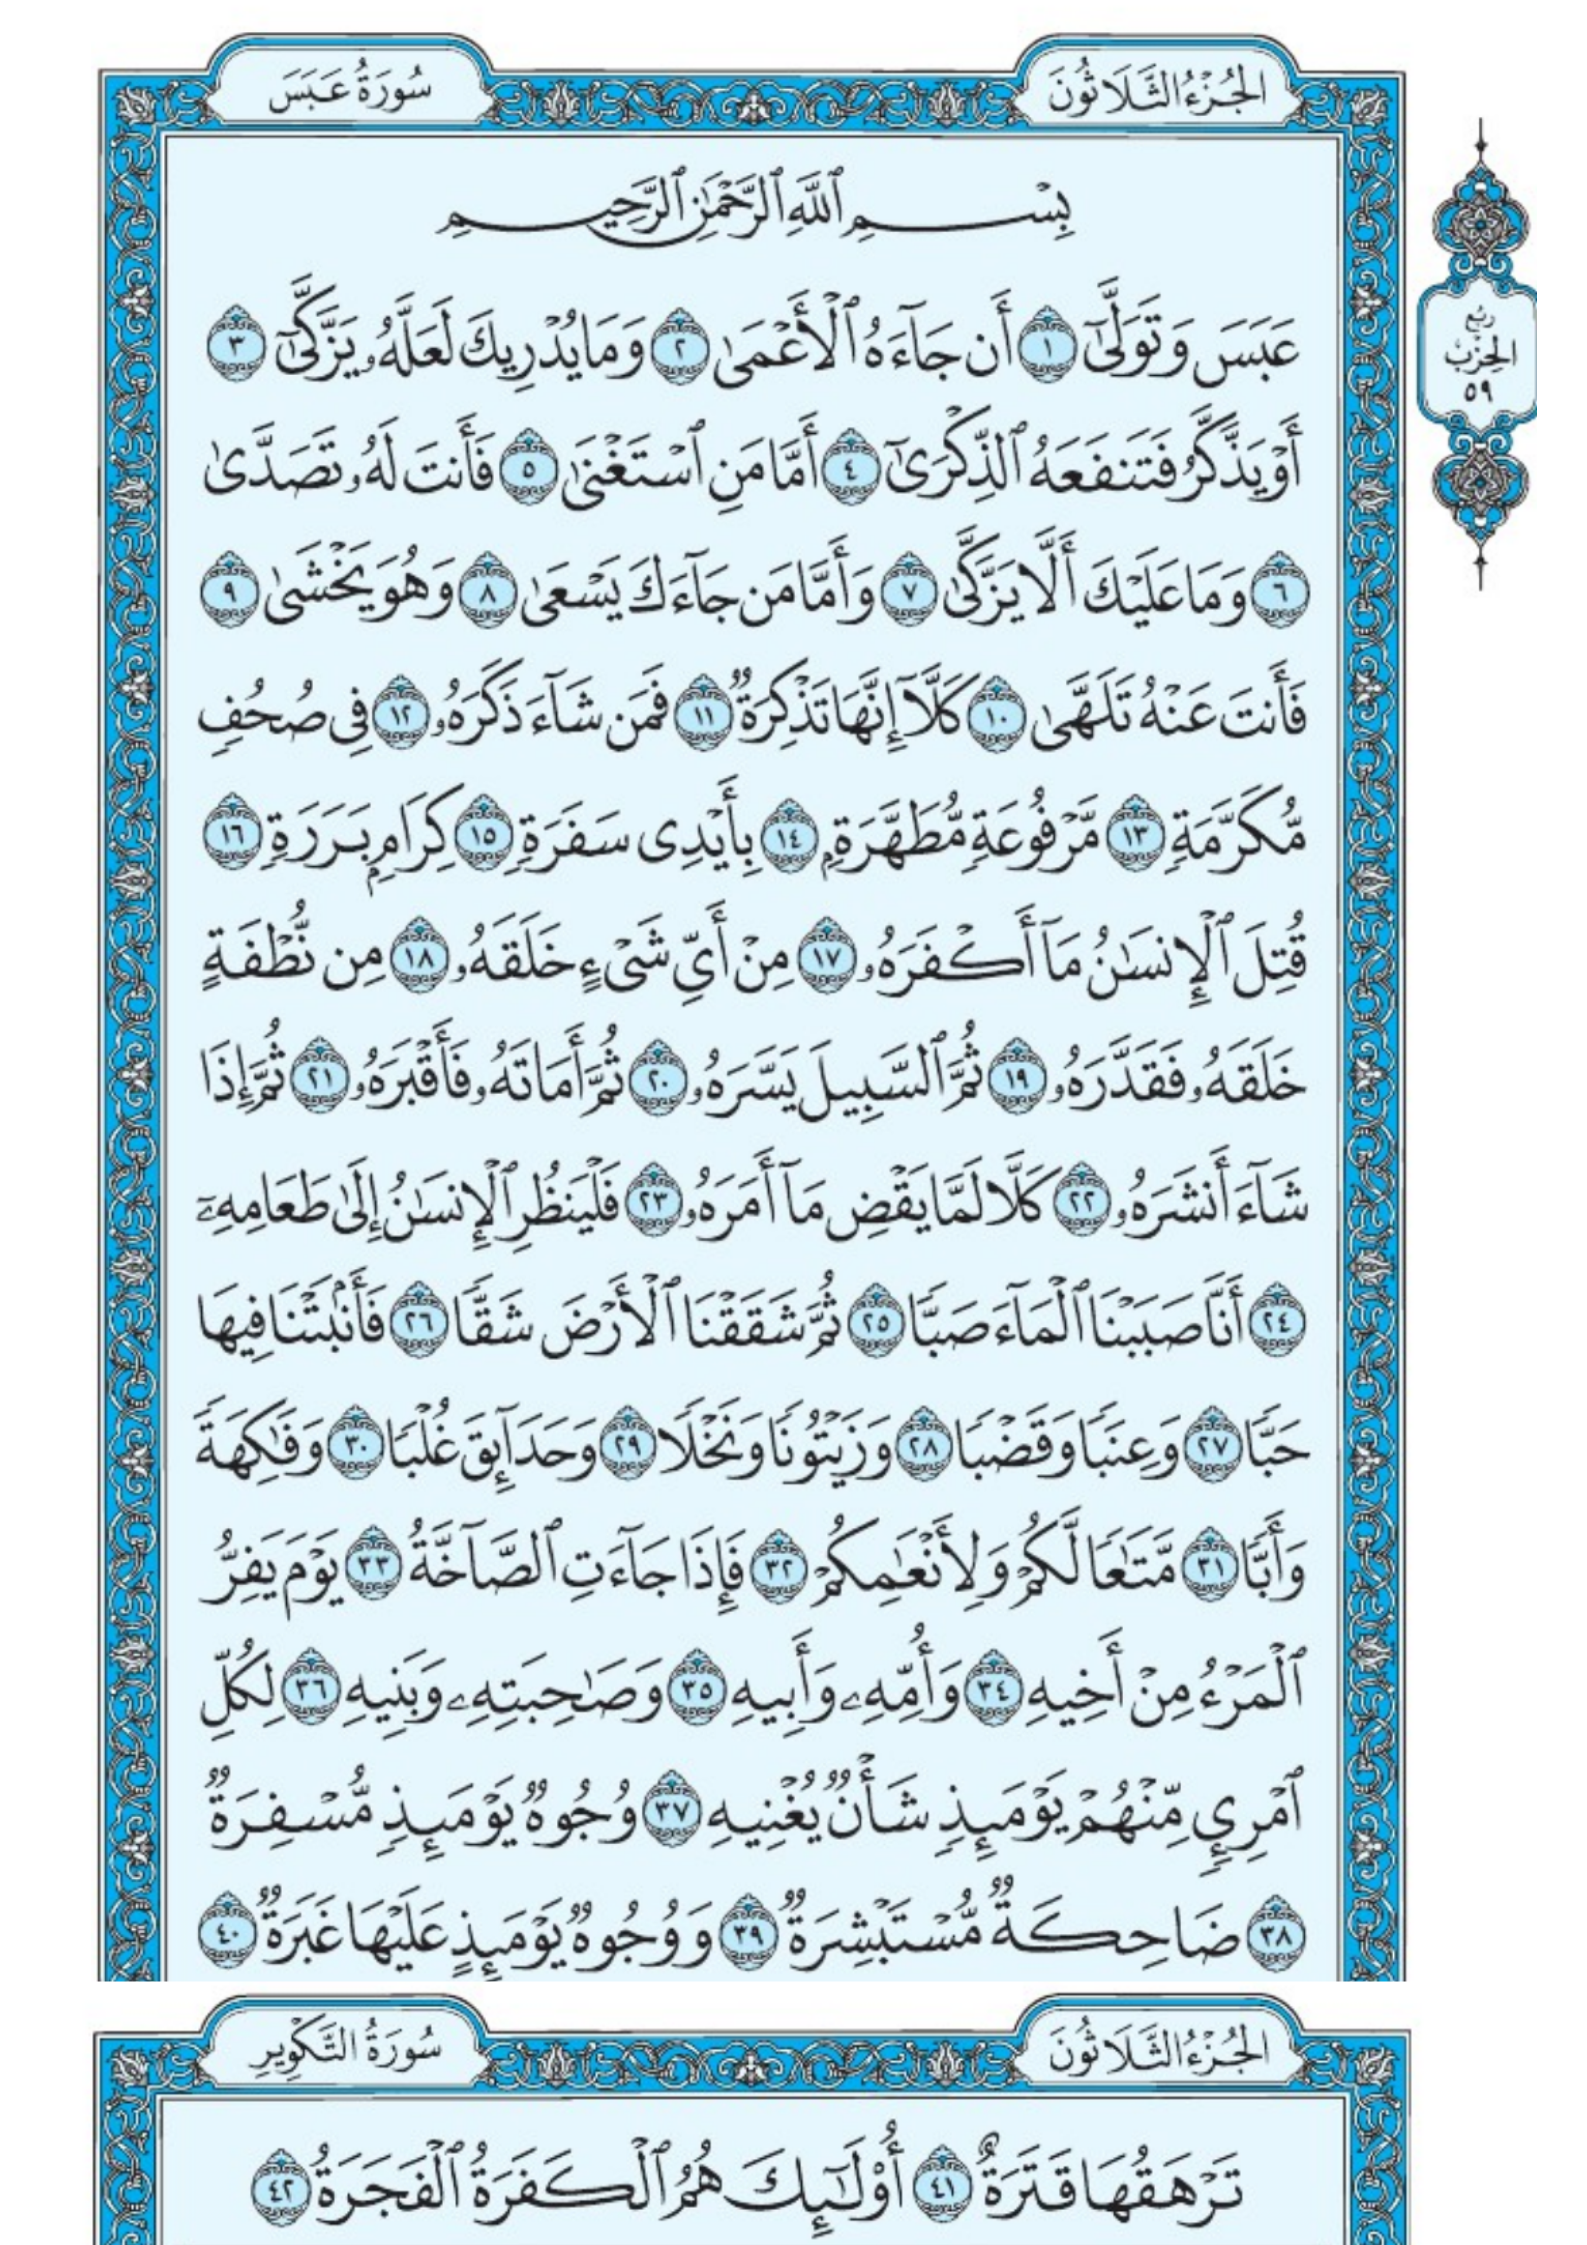 الجُزْءُ الثَّلَاثُونَ
سُورَةُ عَبَسَ
بِسْمِ ٱللَّهِ ٱلرَّحْمَٰنِ ٱلرَّحِيمِ
عَبَسَ وَتَوَلَّىٰٓ ١ أَن جَآءَهُ ٱلْأَعْمَىٰ ٢ وَمَا يُدْرِيكَ لَعَلَّهُۥ يَزَّكَّىٰٓ ٣
أَوْ يَذَّكَّرُ فَتَنفَعَهُ ٱلذِّكْرَىٰٓ ٤ أَمَّا مَنِ ٱسْتَغْنَىٰ ٥ فَأَنتَ لَهُۥ تَصَدَّىٰ
٦ وَمَا عَلَيْكَ أَلَّا يَزَّكَّىٰ ٧ وَأَمَّا مَن جَآءَكَ يَسْعَىٰ ٨ وَهُوَ يَخْشَىٰ ٩
فَأَنتَ عَنْهُ تَلَهَّىٰ ١٠ كَلَّآ إِنَّهَا تَذْكِرَةٌ ١١ فَمَن شَآءَ ذَكَرَهُۥ ١٢ فِى صُحُفٍ
مُّكَرَّمَةٍ ١٣ مَّرْفُوعَةٍ مُّطَهَّرَةٍۭ ١٤ بِأَيْدِى سَفَرَةٍ ١٥ كِرَامٍۭ بَرَرَةٍ ١٦
قُتِلَ ٱلْإِنسَٰنُ مَآ أَكْفَرَهُۥ ١٧ مِنْ أَيِّ شَىْءٍ خَلَقَهُۥ ١٨ مِن نُّطْفَةٍ
خَلَقَهُۥ فَقَدَّرَهُۥ ١٩ ثُمَّ ٱلسَّبِيلَ يَسَّرَهُۥ ٢٠ ثُمَّ أَمَاتَهُۥ فَأَقْبَرَهُۥ ٢١ ثُمَّ إِذَا
شَآءَ أَنشَرَهُۥ ٢٢ كَلَّا لَمَّا يَقْضِ مَآ أَمَرَهُۥ ٢٣ فَلْيَنظُرِ ٱلْإِنسَٰنُ إِلَىٰ طَعَامِهِۦٓ
٢٤ أَنَّا صَبَبْنَا ٱلْمَآءَ صَبًّا ٢٥ ثُمَّ شَقَقْنَا ٱلْأَرْضَ شَقًّا ٢٦ فَأَنۢبَتْنَا فِيهَا
حَبًّا ٢٧ وَعِنَبًا وَقَضْبًا ٢٨ وَزَيْتُونًا وَنَخْلًا ٢٩ وَحَدَآئِقَ غُلْبًا ٣٠ وَفَٰكِهَةً
وَأَبًّا ٣١ مَّتَٰعًا لَّكُمْ وَلِأَنْعَٰمِكُمْ ٣٢ فَإِذَا جَآءَتِ ٱلصَّآخَّةُ ٣٣ يَوْمَ يَفِرُّ
ٱلْمَرْءُ مِنْ أَخِيهِ ٣٤ وَأُمِّهِۦ وَأَبِيهِ ٣٥ وَصَٰحِبَتِهِۦ وَبَنِيهِ ٣٦ لِكُلِّ
ٱمْرِئٍ مِّنْهُمْ يَوْمَئِذٍ شَأْنٌ يُغْنِيهِ ٣٧ وُجُوهٌ يَوْمَئِذٍ مُّسْفِرَةٌ
٣٨ ضَاحِكَةٌ مُّسْتَبْشِرَةٌ ٣٩ وَوُجُوهٌ يَوْمَئِذٍ عَلَيْهَا غَبَرَةٌ ٤٠
رُبْع
الحِزْب
٥٩
الجُزْءُ الثَّلَاثُونَ
سُورَةُ التَّكْوِيرِ
تَرْهَقُهَا قَتَرَةٌ ٤١ أُو۟لَٰٓئِكَ هُمُ ٱلْكَفَرَةُ ٱلْفَجَرَةُ ٤٢